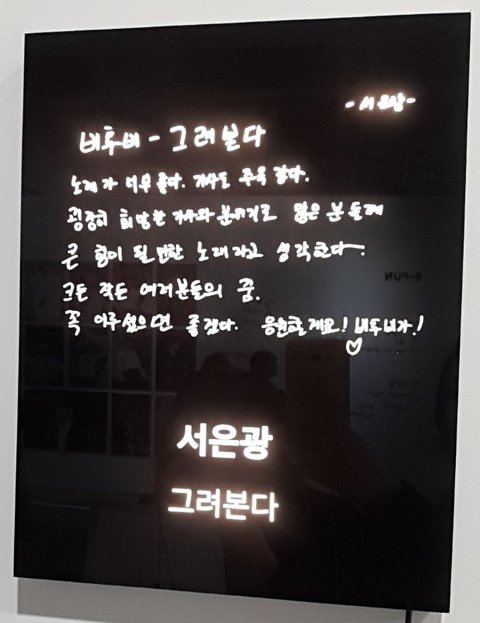 - 서은광 -
비투비 - 그려본다
노래가 너무 좋다. 가사도 주옥 같다.
굉장히 희망찬 가사와 분위기로 많은 분들께
큰 힘이 될 만한 노래라고 생각한다.
크든 작든 여러분들의 꿈.
꼭 이루셨으면 좋겠다. 응원할게요! 비투비가!
서은광
그려본다